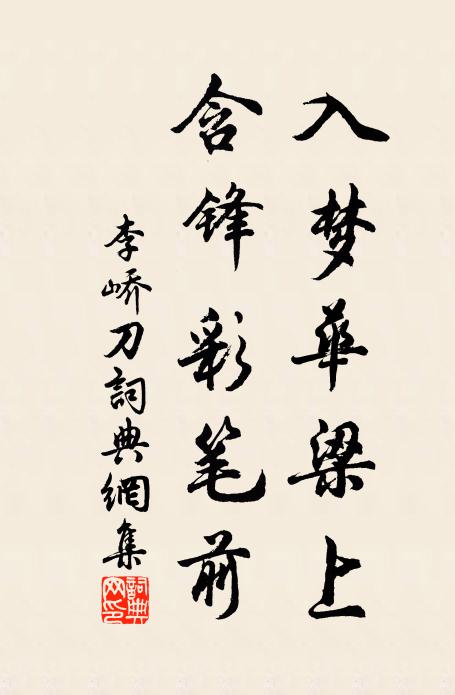 入梦華梁上
含锋彩笔前
李峤刀詞典網集
詞典网印